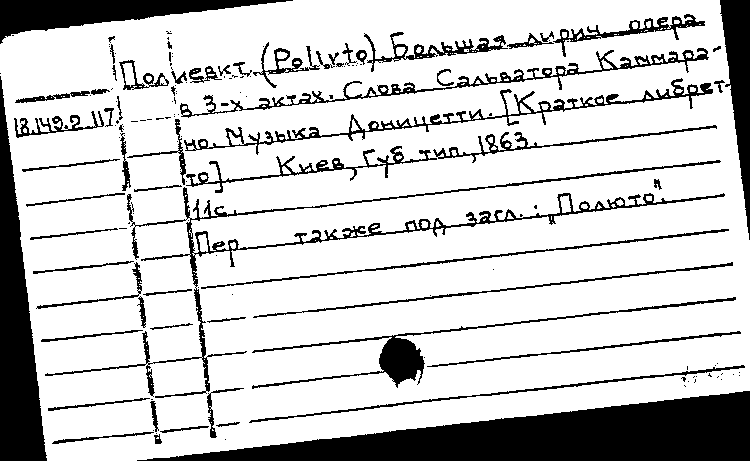 Полиевкт. (Polivto). Большая лирич. опера
18.149.2.117. в 3-х актах. Слова Сальватора Каммара-
но. Музыка Доницетти. [Краткое либрет-
то]. Киев, Губ. тип., 1863.
11с.
Пер. также под загл.: „Полюто".